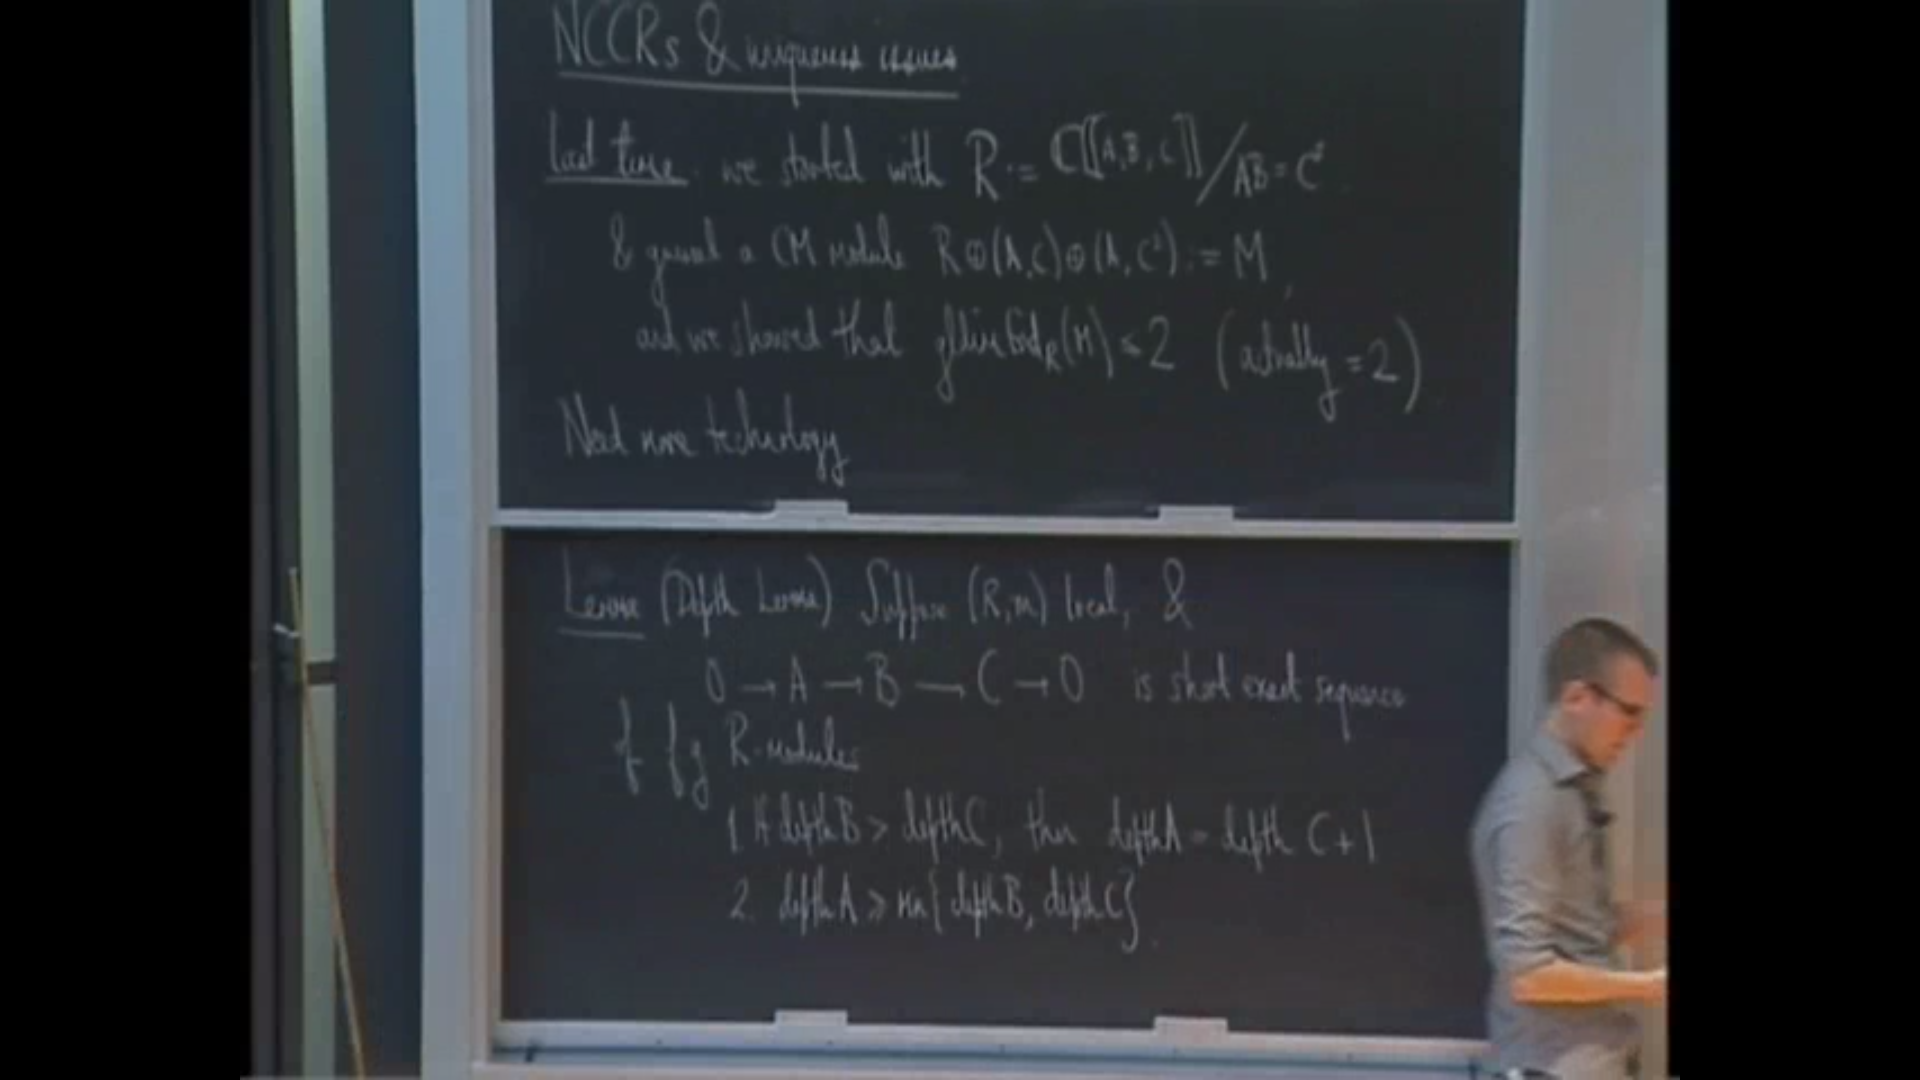 NCCRs & uniqueness issues
Last time. we started with R := ℂ[[A,B,C]]/AB=C³
& guessed a CM module R⊕(A,C)⊕(A,C²) := M,
and we showed that gldim End_R(M) ≤ 2 (actually = 2)
Need more technology
Lemma (Depth Lemma) Suppose (R,m) local, &
0 → A → B → C → 0 is short exact sequence
of fg R-modules
1. If depth B > depth C, then depth A = depth C + 1
2. depth A ≥ min{depth B, depth C}.